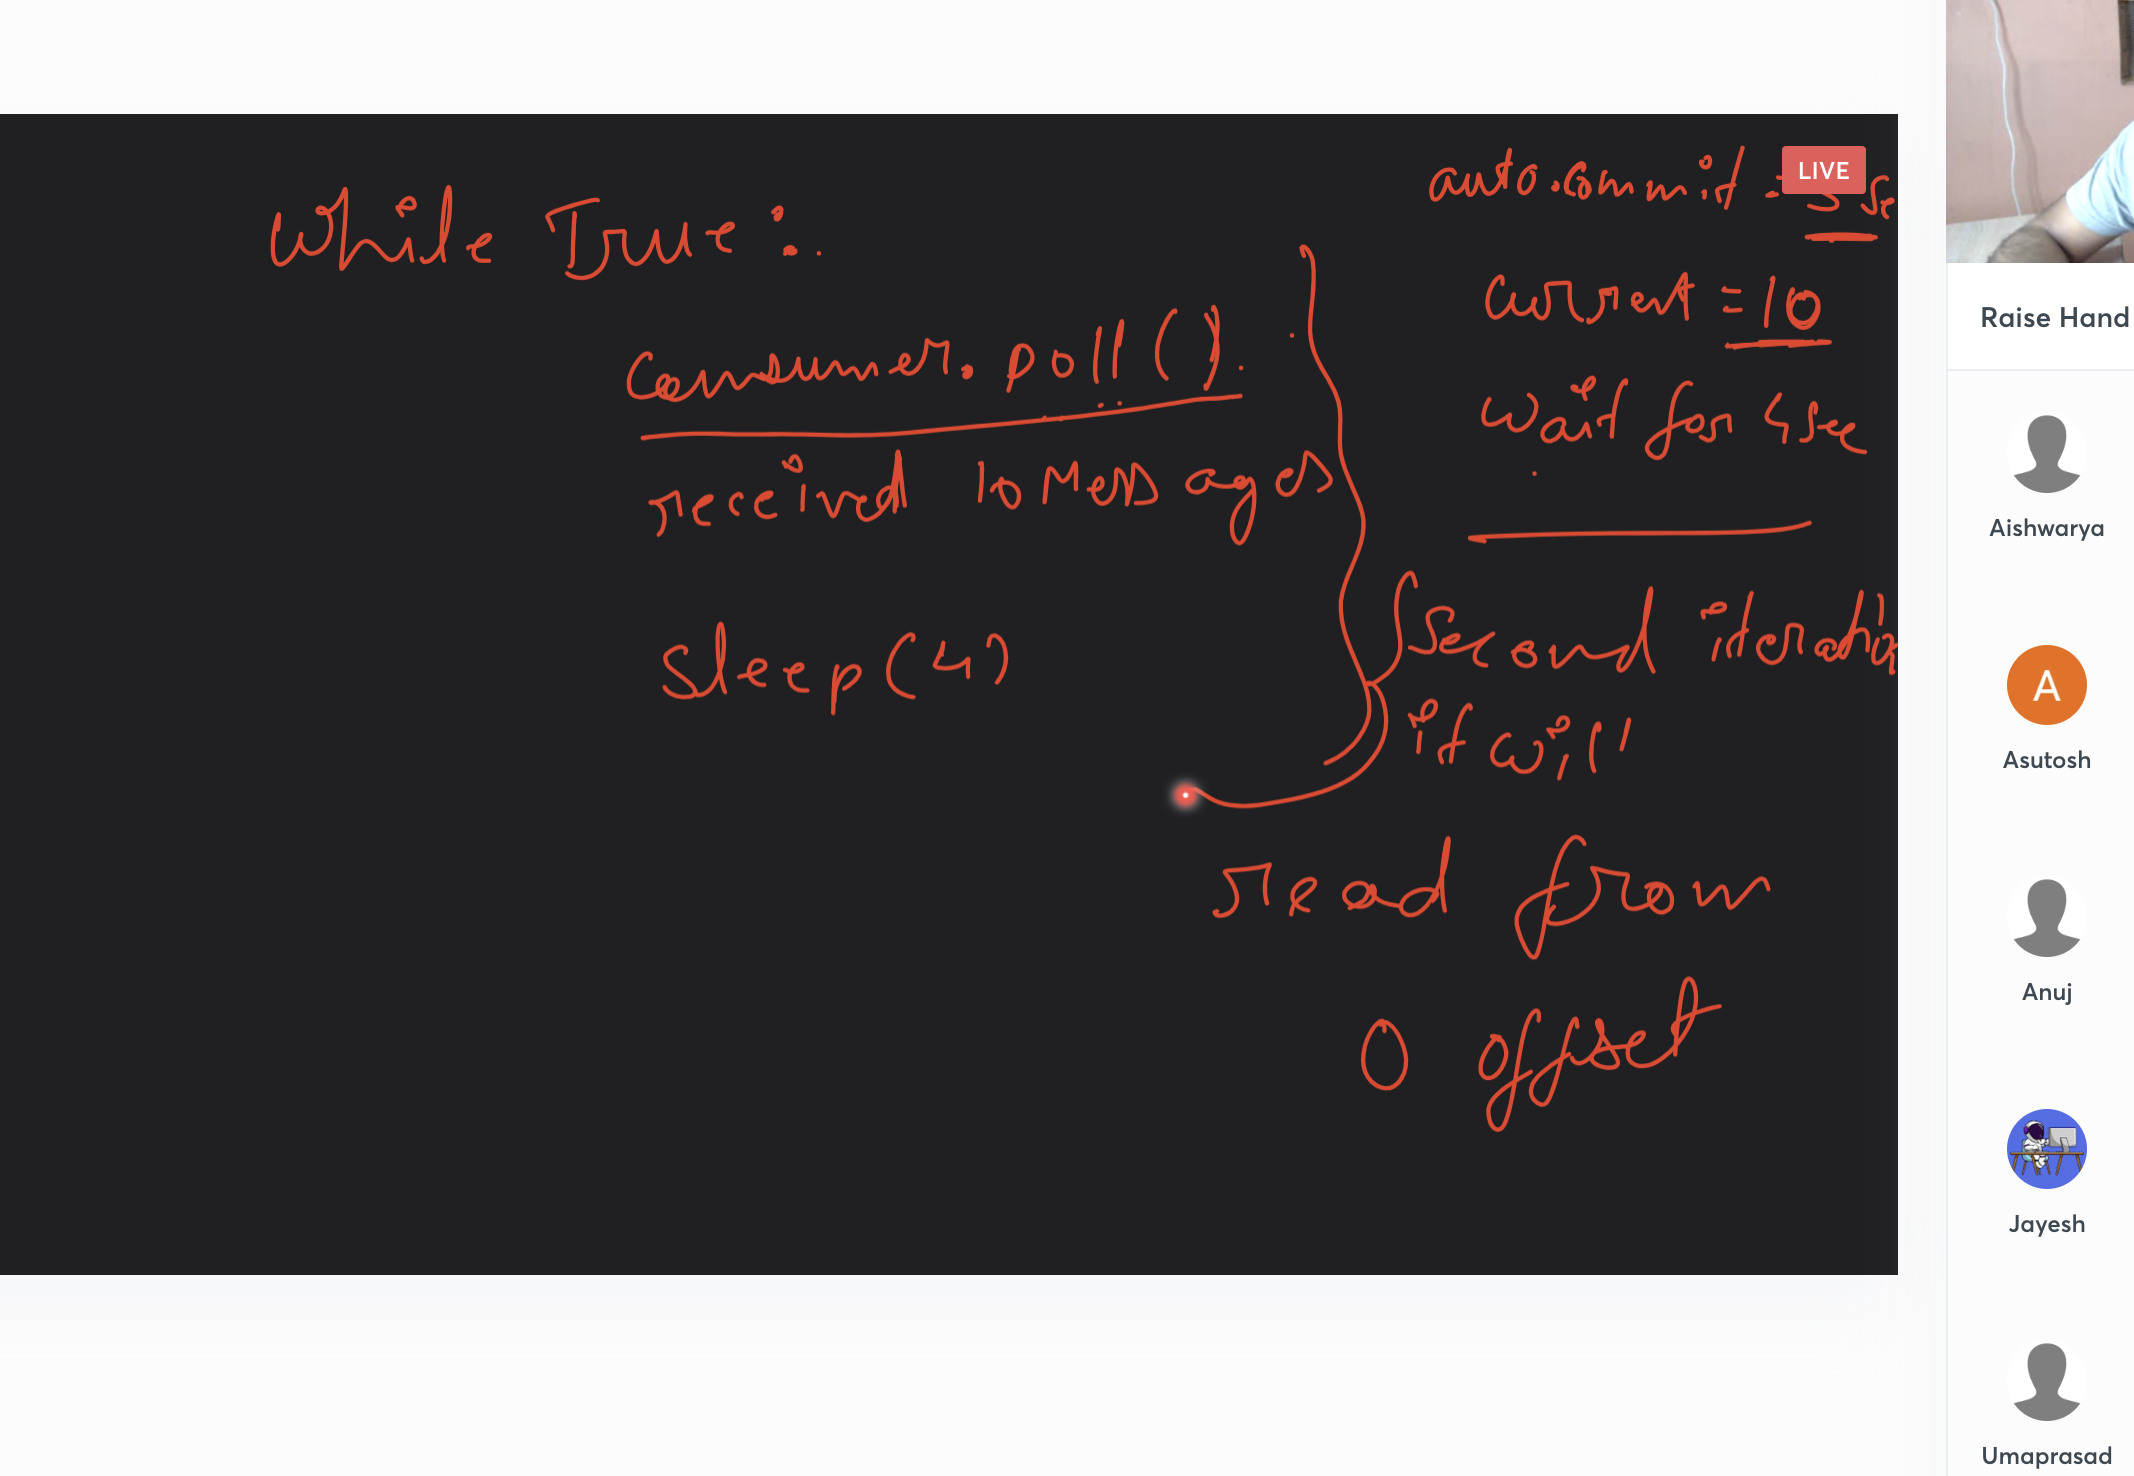 While True:
consumer.poll().
received 10 Messages
Sleep(4)
auto.commit = 5 se
LIVE
current = 10
wait for 4 sec
Second iteratio
it will
read from
0 offset
Raise Hand
Aishwarya
A
Asutosh
Anuj
Jayesh
Umaprasad